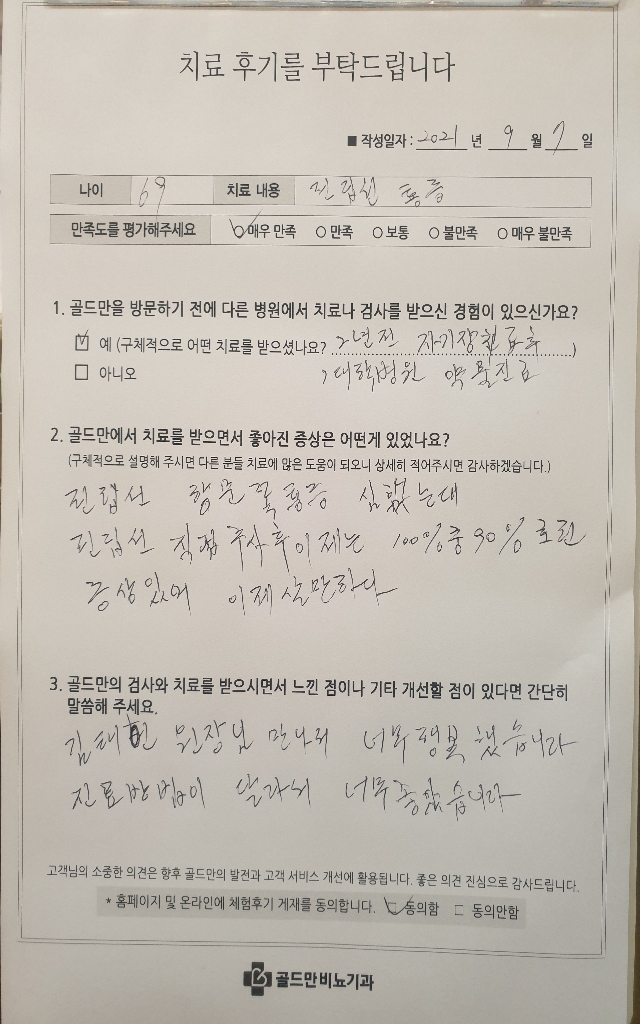 치료 후기를 부탁드립니다
■ 작성일자 : 2021 년 9 월 7 일
나이 69 치료 내용 전립선 통증
만족도를 평가해주세요 매우 만족 만족 보통 불만족 매우 불만족
1. 골드만을 방문하기 전에 다른 병원에서 치료나 검사를 받으신 경험이 있으신가요?
예 (구체적으로 어떤 치료를 받으셨나요? 2년전 자기장 )
아니오 대학병원 약물진료
2. 골드만에서 치료를 받으면서 좋아진 증상은 어떤게 있었나요?
(구체적으로 설명해 주시면 다른 분들 치료에 많은 도움이 되오니 상세히 적어주시면 감사하겠습니다.)
전립선 항문쪽 통증 심했는데
전립선 직접 주사후 이제는 100%중 90%
증상있어 이제 살만하다
3. 골드만의 검사와 치료를 받으시면서 느낀 점이나 기타 개선할 점이 있다면 간단히
말씀해 주세요.
김태헌 원장님 만나서 너무 행복했습니다
진료방법이 달라서 너무 좋았습니다
고객님의 소중한 의견은 향후 골드만의 발전과 고객 서비스 개선에 활용됩니다. 좋은 의견 진심으로 감사드립니다.
* 홈페이지 및 온라인에 체험후기 게재를 동의합니다. 동의함 동의안함
골드만비뇨기과